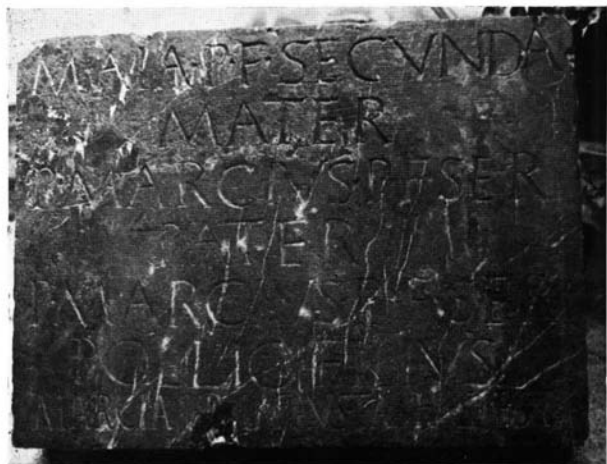 MAIA·P·F·SECVNDA
MATER
P·MARCIVS·P·F·SER
PATER
P·MARCIVS·P·F·SER
POLLIO
MARCIA